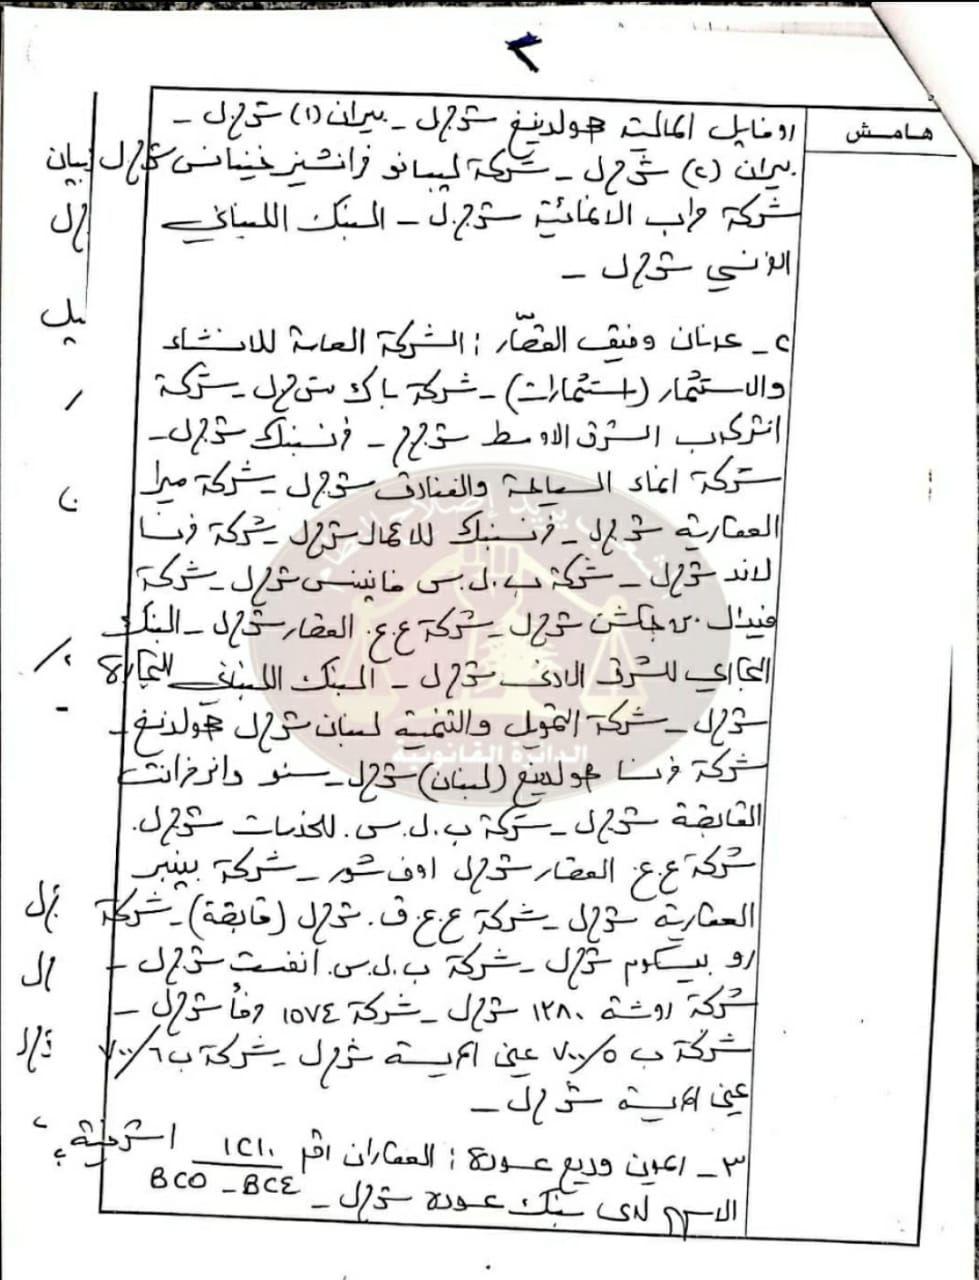 ٢
هامش
روفايل المالية هولدينغ ش.م.ل - بيران (١) ش.م.ل -
بيران (٢) ش.م.ل - شركة ليبانو فرانشيز فينانس ش.م.ل
شركة مراب الانمائية ش.م.ل - البنك اللبناني
الفرنسي ش.م.ل -
٢- عدنان وفيق القصّار : الشركة العامة للانشاء
والاستثمار (استثمارات) - شركة باك ش.م.ل - شركة
انتركوب الشرق الاوسط ش.م.م - فرنسبنك ش.م.ل -
شركة انماء السياحة والفنادق ش.م.ل - شركة ميرا
العقارية ش.م.ل - فرنسبنك للاعمال ش.م.ل - شركة فرنسا
لاند ش.م.ل - شركة ب.ل.س فايننس ش.م.ل - شركة
فيدرال ش.م.ل - شركة ع.ع. العقار ش.م.ل - البنك
التجاري للشرق الادنى ش.م.ل - البنك اللبناني للتجارة
ش.م.ل - شركة التمويل والتنمية لبنان ش.م.ل هولدينغ -
شركة فرنسا هولدينغ (لبنان) ش.م.ل -
القابضة ش.م.ل - شركة ب.ل.س. للخدمات ش.م.ل.
شركة ع.ع. العقار ش.م.ل اوف شور - شركة
العقارية ش.م.ل - شركة ع.ع.ق. ش.م.ل (قابضة) - شركة
رو بيسكوم ش.م.ل - شركة ب.ل.س. انفست ش.م.ل -
شركة روشة ١٢٨٠ ش.م.ل - شركة ١٥٧٤ ش.م.ل -
شركة ب ٧٠٠/٥ عين المريسة ش.م.ل - شركة ب ٧٠٠/٦
عين المريسة ش.م.ل -
٣- ريمون وديع عودة : العقاران رقم ١٢١٠ اشرفية ،
B٢٥ - B٢٤
الاسهم لدى بنك عودة ش.م.ل -
الشعب يريد إصلاح النظام
الدائرة القانونية